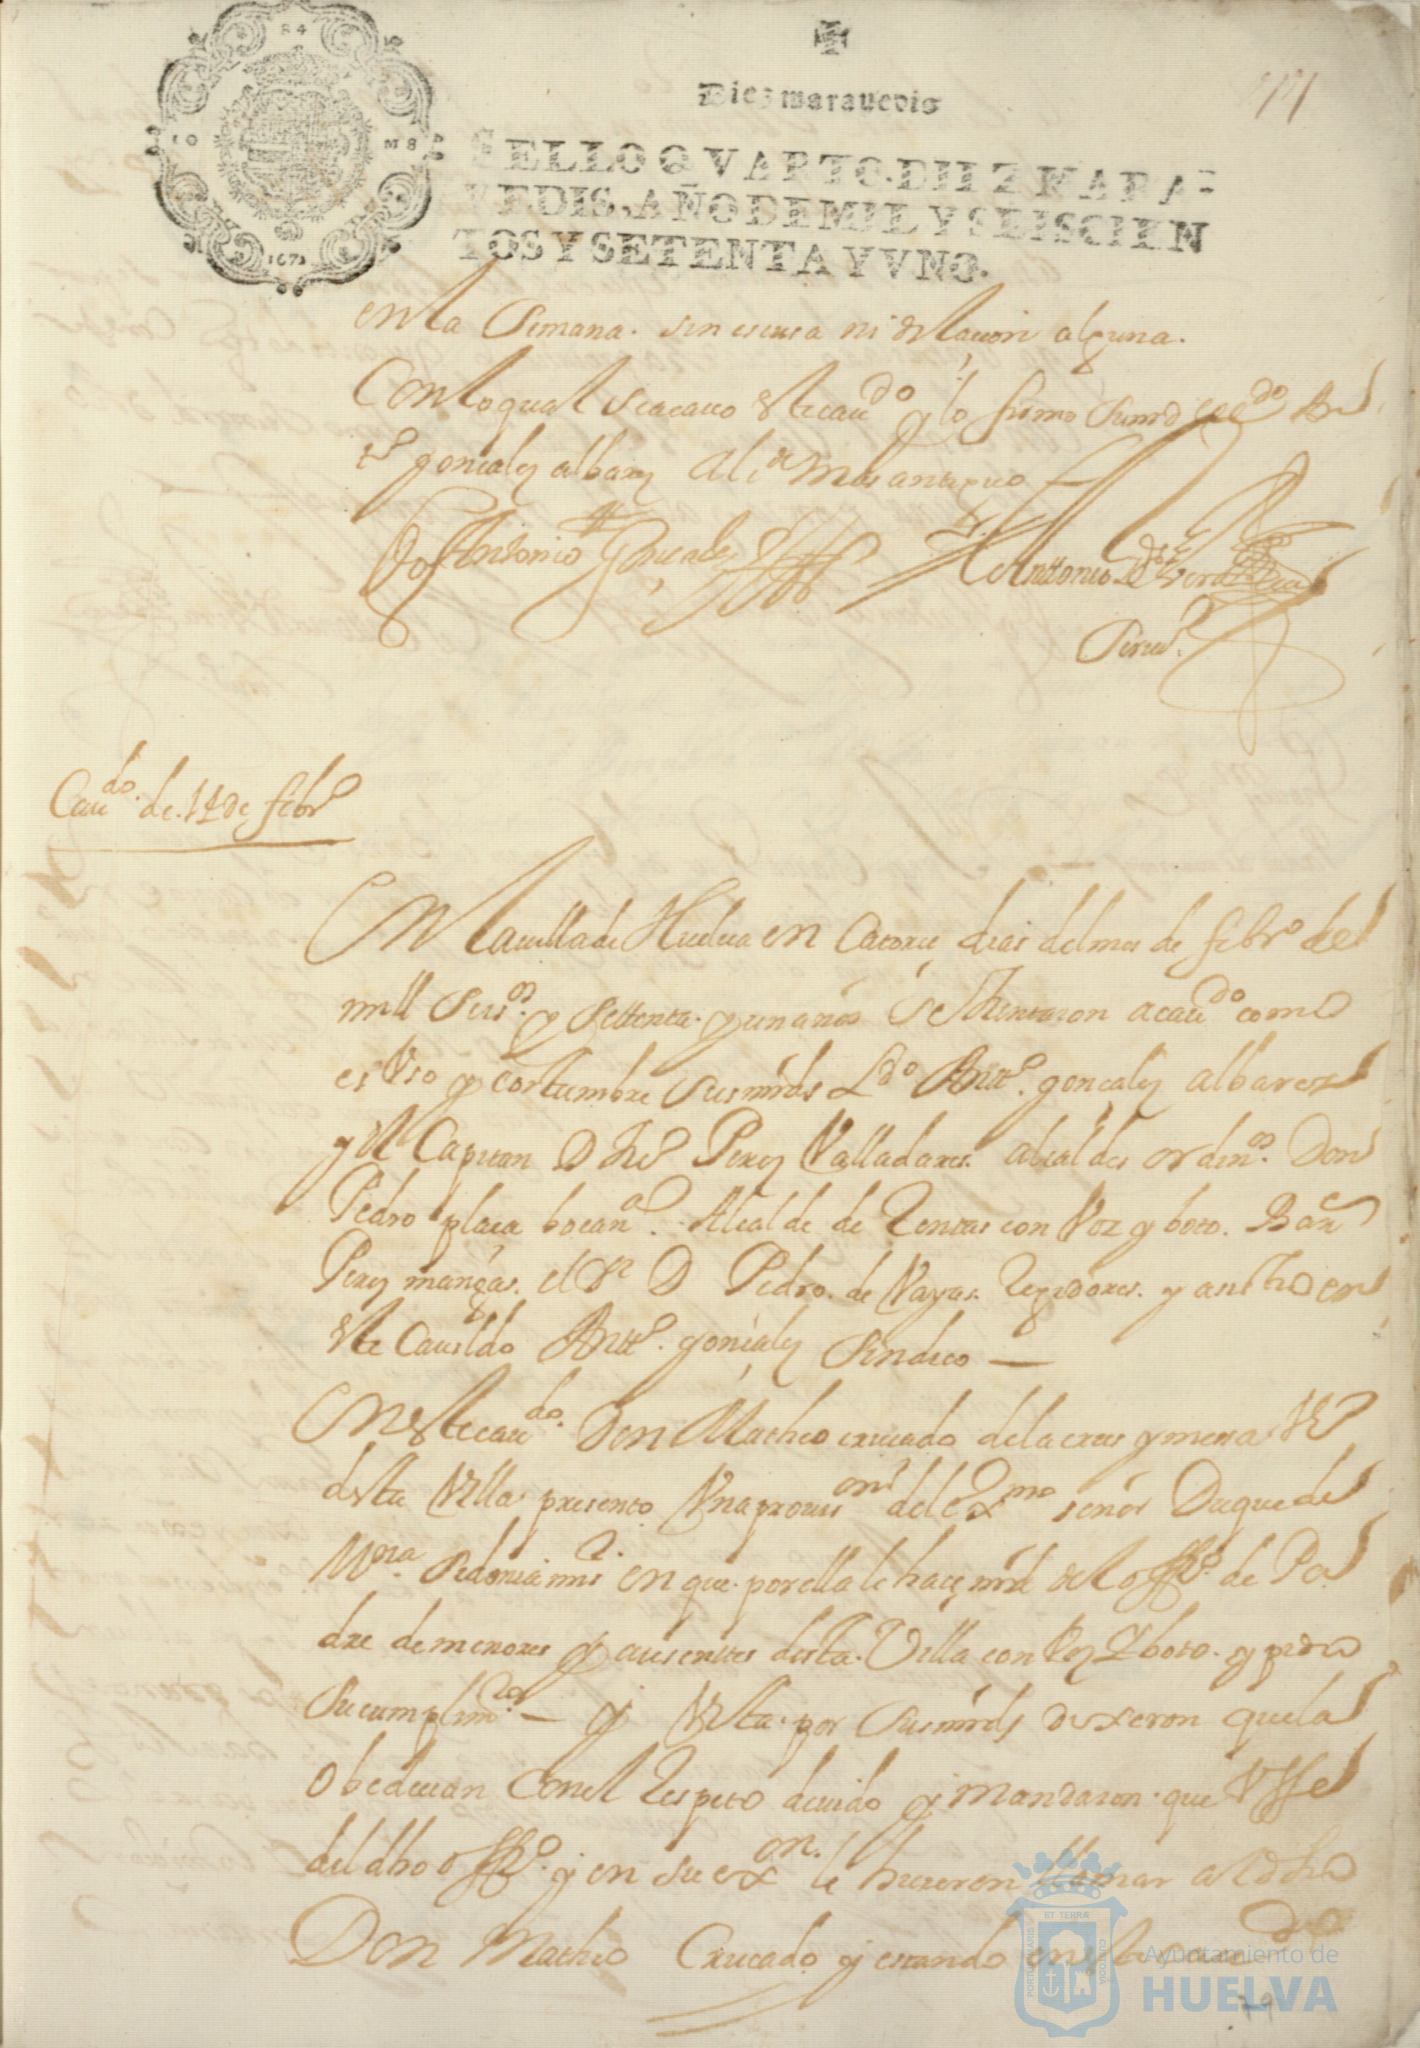 Diez maravedis
SELLO QVARTO. DIEZ MARA-
VEDIS, AÑO DE MIL Y SEISCIEN
TOS Y SETENTA Y VNO.
1671
en la Semana. sin escusa ni dilacion alguna.
Con lo qual se acavo este cau.do y lo firmo su md
gonçales albarez al.de mas antiguo
Antonio Gonçales
Antonio de
Cau.do de 14 de febr.o
En la villa de Huelva en Catorçe dias del mes de febr.o de
mill Seis.os y settenta y un años se Juntaron a cau.do como
es Vso y costumbre sus mrds L.do Antt.o gonçalez albarez
y el Capitan D Perez Valladares alcaldes ordin.os Don
Pedro plaça bocan.a Alcalde de Rentas con Voz y boto.
Perez manças. el S.r D Pedro de Vayas. Regidores. y
este Cavildo Antt.o gonçalez Sindico —
En este cau.do Don Matheo crucado de la crus y mena
desta Villa presento Vna provis.on del Ex.mo señor Duque de
M.na Sidonia mi s.r en que por ella le haçe mrd del off.o de Pa
dre de menores y ausentes desta Villa con Voz y boto. y pidio
su cumplim.to — y Vista por sus mrds dixeron que la
Obedecian Con el Respeto devido y mandaron que Vsse
del dho off.o y en su ex.on le hicieron llamar al dho
Don Matheo Crucado y estando en este cau.do
Ayuntamiento de
HUELVA
79